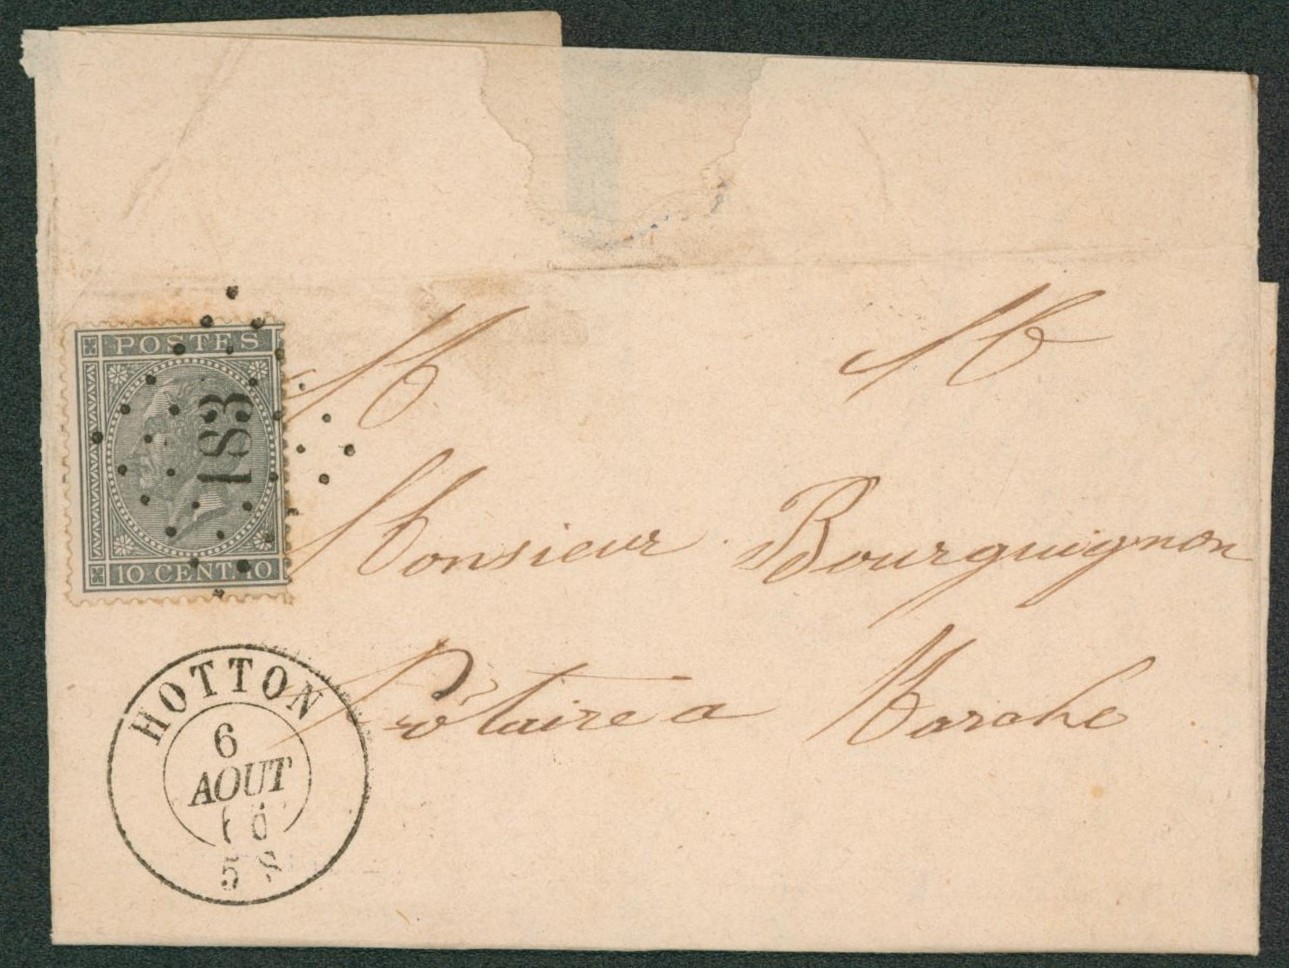 POSTES
183
10 CENT. 10
M M
Monsieur Bourguignon
Notaire a Marche
HOTTON
6
AOUT
66
5 S